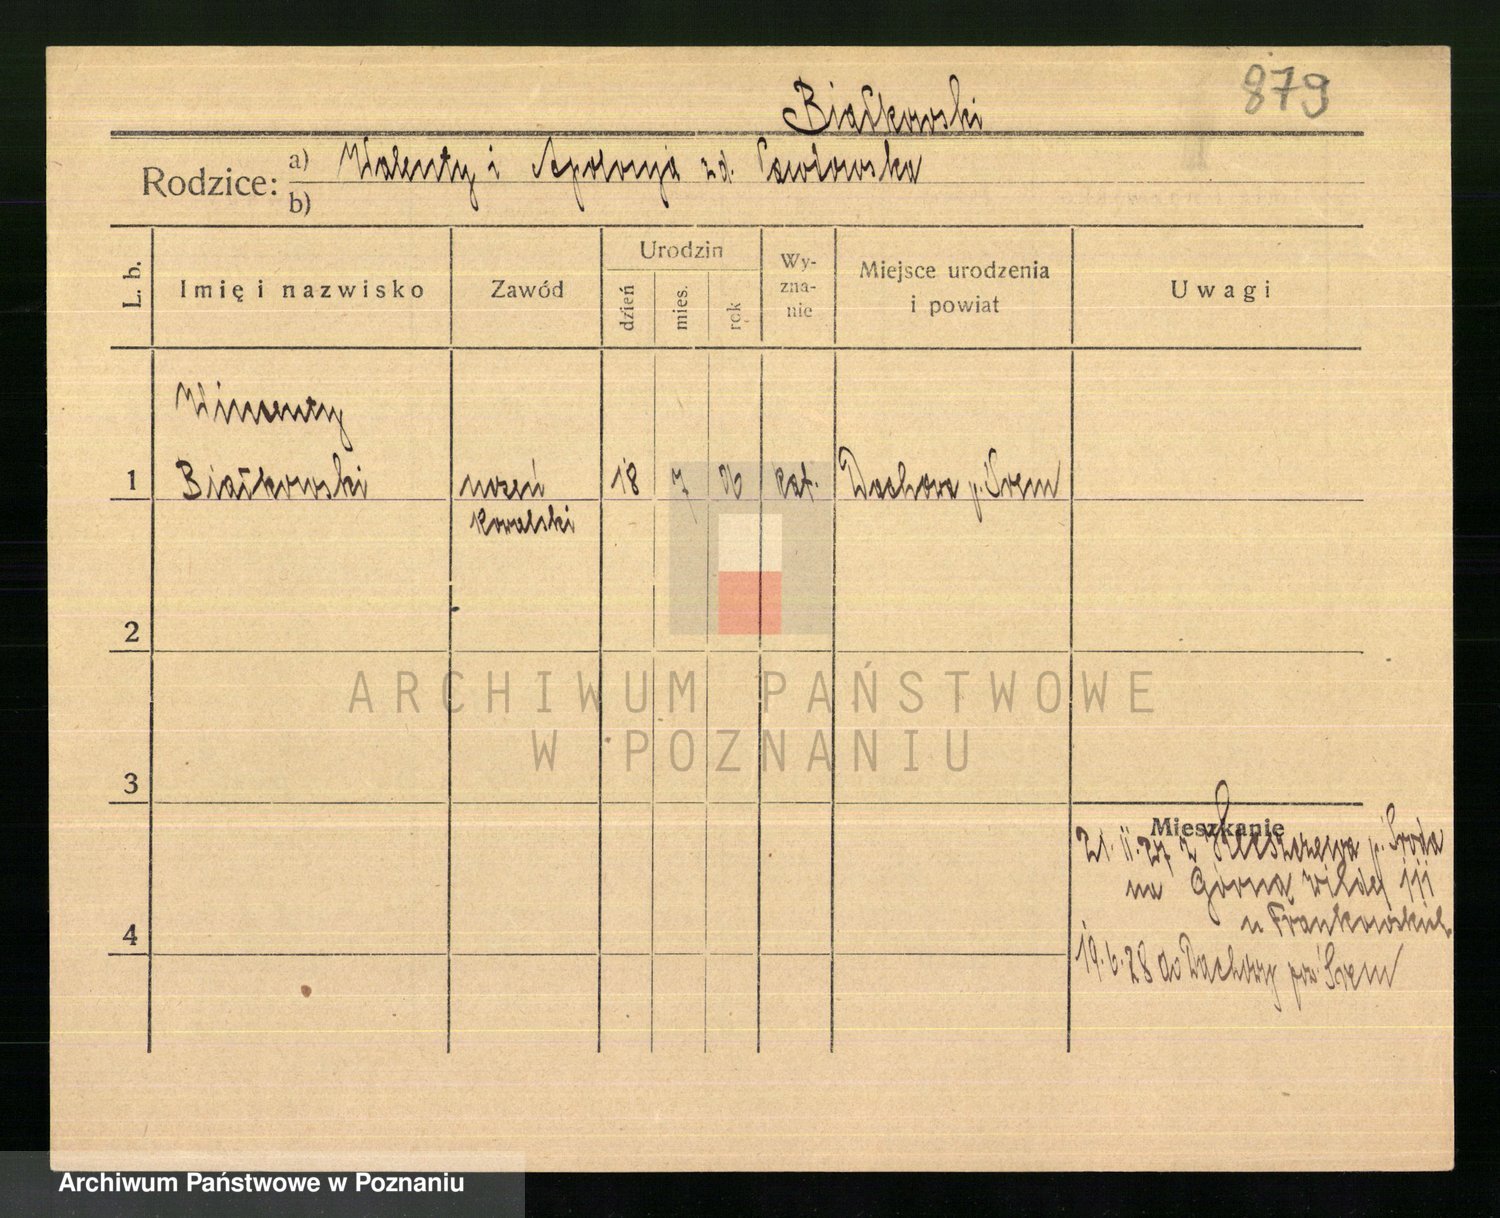 879
Białkowski
Rodzice: a) Walenty i Apolonja zd. Pawłowska
b)
L. b.
Imię i nazwisko
Zawód
Urodzin
dzień
mies.
rok
Wy-
zna-
nie
Miejsce urodzenia
i powiat
Uwagi
Wincenty
1 Białkowski uczeń 18 7 06 kat. Dachowa p. Śrem
kowalski
2
3
4
Mieszkanie
21. 11. 27 z p. Środa
na Górna Wilda 111
u Frankowskich
19. 6. 28 do Dachowy pow Śrem
ARCHIWUM PAŃSTWOWE
W POZNANIU
Archiwum Państwowe w Poznaniu